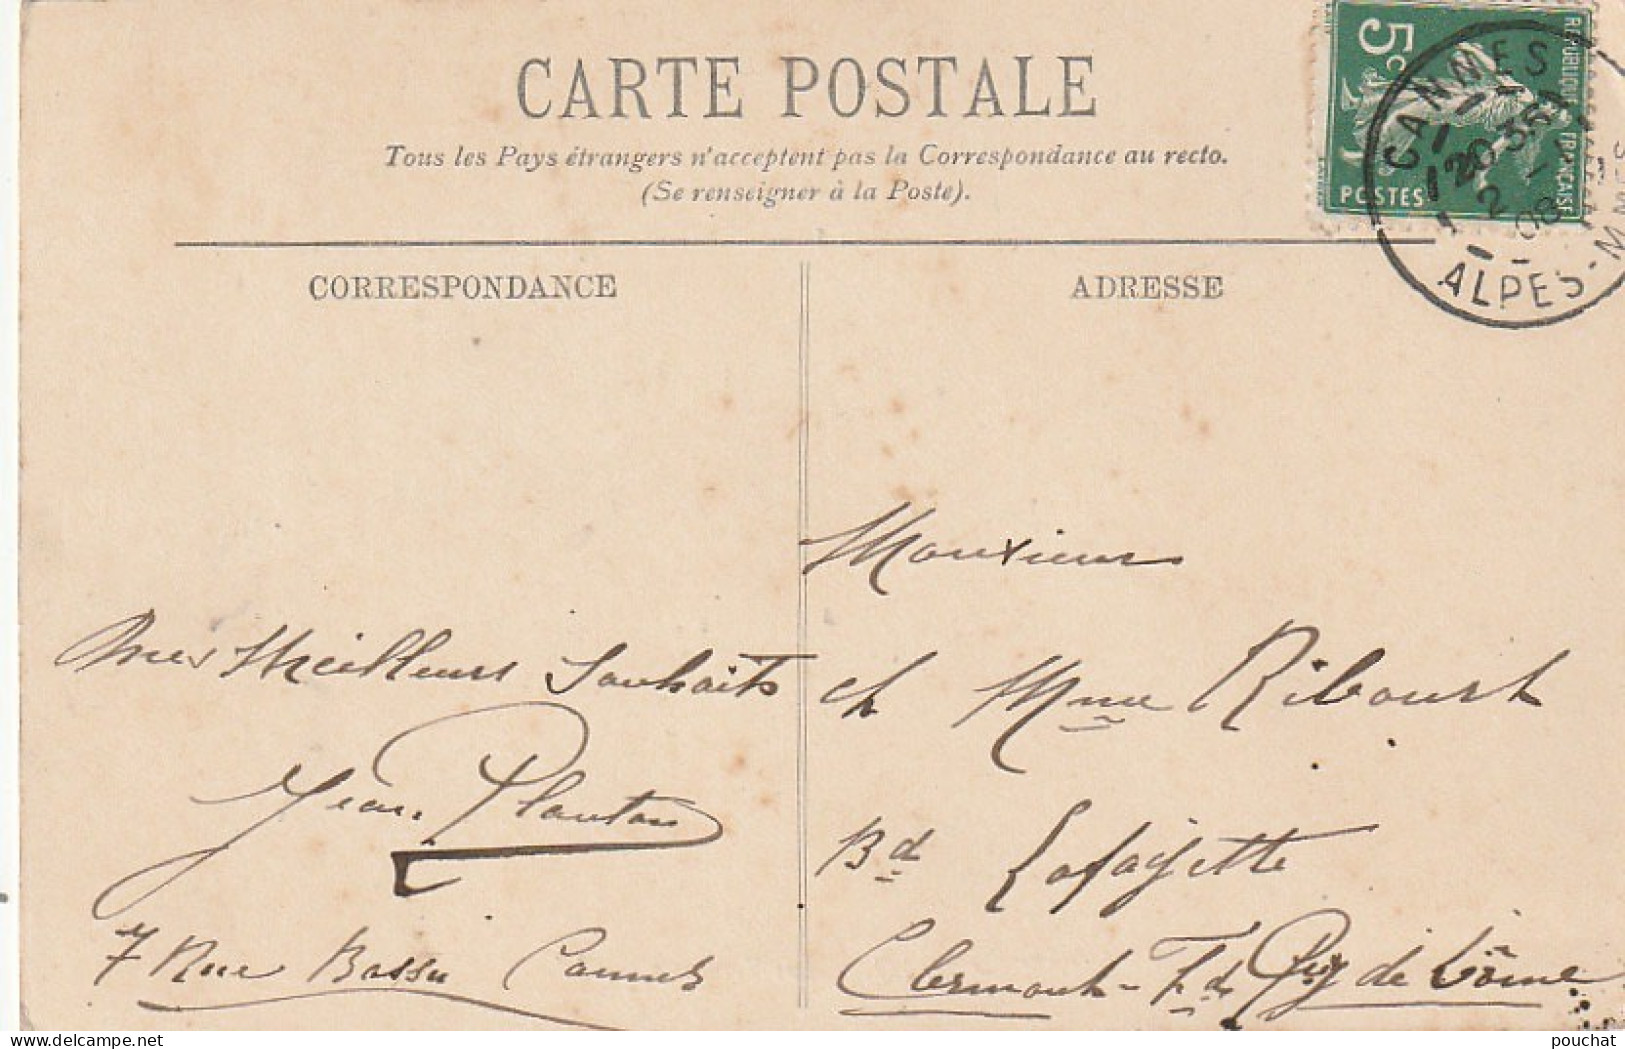 CARTE POSTALE
Tous les Pays étrangers n'acceptent pas la Correspondance au recto.
(Se renseigner à la Poste).
5c
REPUBLIQUE FRANCAISE
POSTES
CANNES
20 35
2 - 1
08
ALPES-M MES
CORRESPONDANCE
ADRESSE
Mes Meilleurs Souhaits
Jean Plantau
7 Rue Bossu Cannes
Monsieur
et Mme Ribourt
Bd Lafayette
Clermont-Fd Puy de Dôme
pouchat